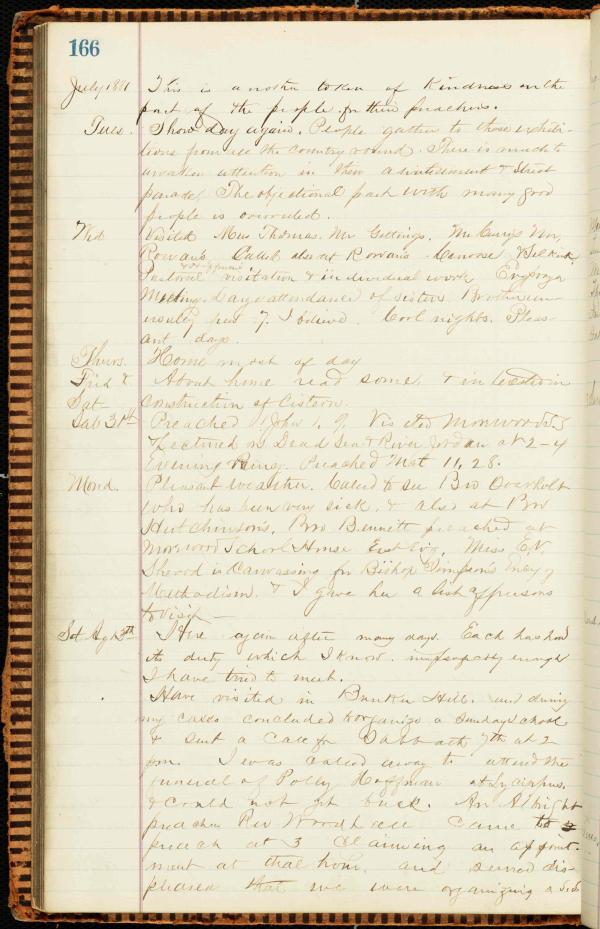 166
July 1881 This is another token of kindness on the
part of the people for their preachers.
Tues. Show day again. People gather to these exhibi-
tions from all the country round. There is much to
awaken attention in their advertisement & Street
parade. The objectional part with many good
people is overruled.
Wed Visited Mrs Thomas. Mr Gettings. Mr Curry's Mr.
Rowan's. Called also at Rowans
Pastoral visitation & individual work Eve prayer
Meeting. days attendance of sisters.
7. I believe. Cool nights. Pleas-
ant days.
Thurs. Home most of day
Frid & About home read some, & interested in
Sat- construction of Cistern.
Sab 31st Preached 1 John 1. 9. Visited Morwood S.S
& lectured on Dead Sea & River Jordan at 2-4
Evening Preached Mat 11, 28.
Mond. Pleasant weather. Called to see Bro Overholt
who has been very sick, & also at Bro
Hutchinson's, Bro Bennett preached at
Morwood School House Miss E.V.
Sherod is Canvassing for Bishop Simpson's Ency of
Methodism. & I gave her a list of persons
to visit -
Here again after many days. Each has had
its duty which I know. imperfectly enough
I have tried to meet.
Have visited in Bunker Hill. and during
my calls concluded to organize a Sunday School
& sent a Call for Sabbath 7th at 2
pm. I was called away to attend the
funeral of Polly Hoffman at Lycippus.
& could not get back. An Albright
preacher Rev Woodhese came to
preach at 3 Claiming an appoint-
ment at that hour, and seemed dis-
pleased that we were organizing a